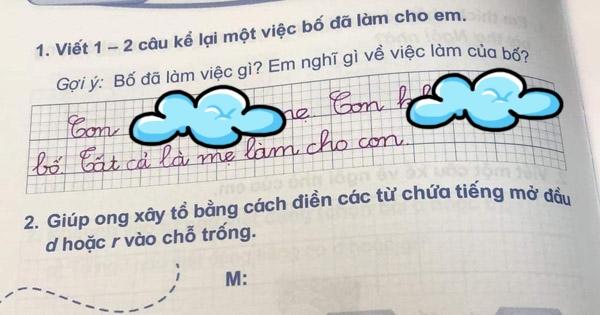 1. Viết 1 – 2 câu kể lại một việc bố đã làm cho em.
Gợi ý: Bố đã làm việc gì? Em nghĩ gì về việc làm của bố?
Con mẹ Con
bố. Tất cả là mẹ làm cho con.
2. Giúp ong xây tổ bằng cách điền các từ chứa tiếng mở đầu
d hoặc r vào chỗ trống.
M: